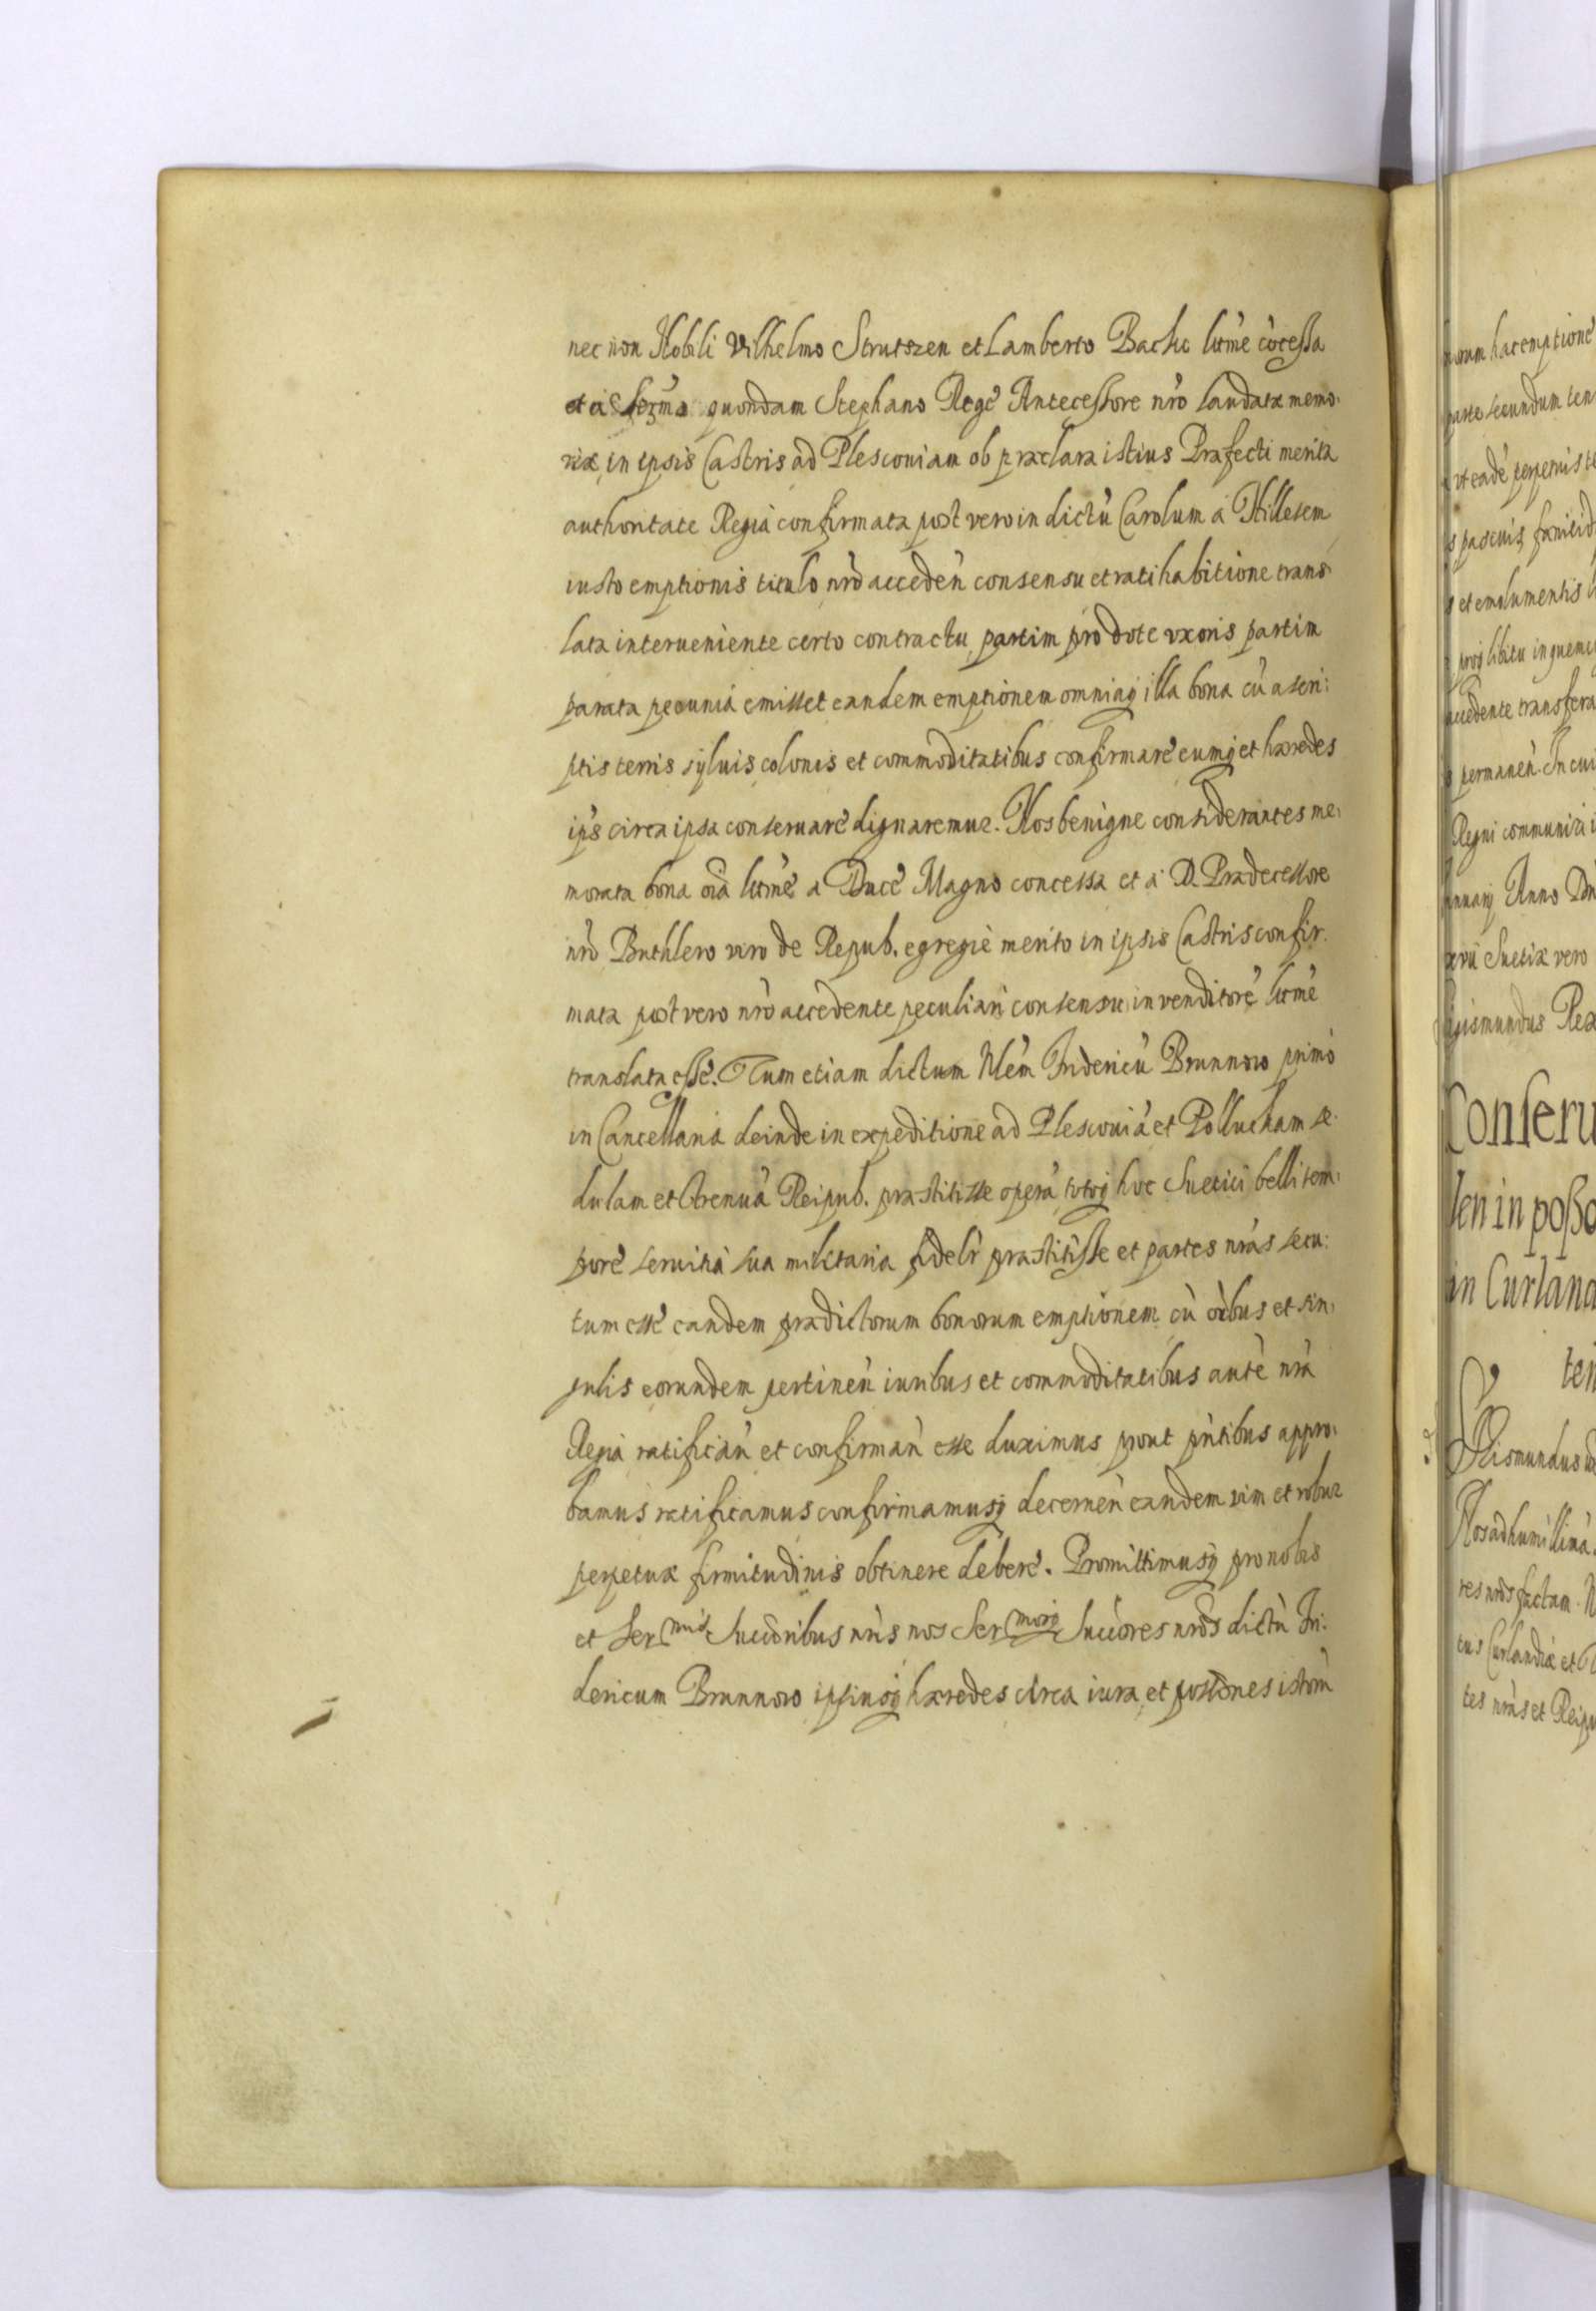 nec non Nobili Vilhelmo Strutszen et Lamberto Bache lrme cōcessa
et a Sermo quondam Stephano Rege Antecessore nrō laudatæ memo:
riæ in ipsis Castris ad Plesconiam ob præclara istius Præfecti merita
authoritate Regia confirmata post vero in dictū Carolum a Hillesem
iusto emptionis titulo nrō acceden consensu et ratihabitione trans
lata interueniente certo contractu partim pro dote vxoris partim
parata pecunia emisset eandem emptionem omniaq illa bona cū ascri:
ptis terris syluis colonis et commoditatibus confirmare eumq et hæredes
ips circa ipsa conseruare dignaremur. Nos benigne considerantes me:
morata bona oīa lrme a Duce Magno concessa et a D. Prædecessore
nrō Buthlero viro de Repub. egregiè merito in ipsis Castris confir
mata post vero nrō accedente peculiari consensu in venditorē lrme
translata esse. Tum etiam dictum Nlem Fridericū Brunnow primò
in Cancellaria deinde in expeditione ad Plesconiā et Pollucham se
dulam et strenuā Reipub. præstitisse operā totoq hoc Suetici belli tem:
pore seruitia sua militaria fidelr præstitisse et partes nras secu:
tum esse eandem prædictorum bonorum emptionem cū oībus et sin:
gulis eorundem pertinen iuribus et commoditatibus autè nra
Regia ratifician et confirman esse duximus prout pntibus appro:
bamus ratificamus confirmamusq decernen eandem vim et robur
perpetuæ firmitudinis obtinere debere. Promittimusq pro nobis
et Sermis Succoribus nris nos Sermosq Succores nros dictū Fri:
dericum Brunnow ipsiusq hæredes circa iura et possones istorū
horum hac emptione
parte secundum ten
vt eadē perpetuis te
s pascuis fœnicid
s et emolumentis
proq libitu in quemcu
accedente transfera
s permanen. In cui
Regni communiri
nuarij Anno Dn
xvii Suetiæ vero
Sigismundus Rex
Conseru
len in poßo
in Curland
ten
Sigismundus D
Nos ad humillimā
res nros factam. N
cus Curlandiæ et
tes nras et Reipu